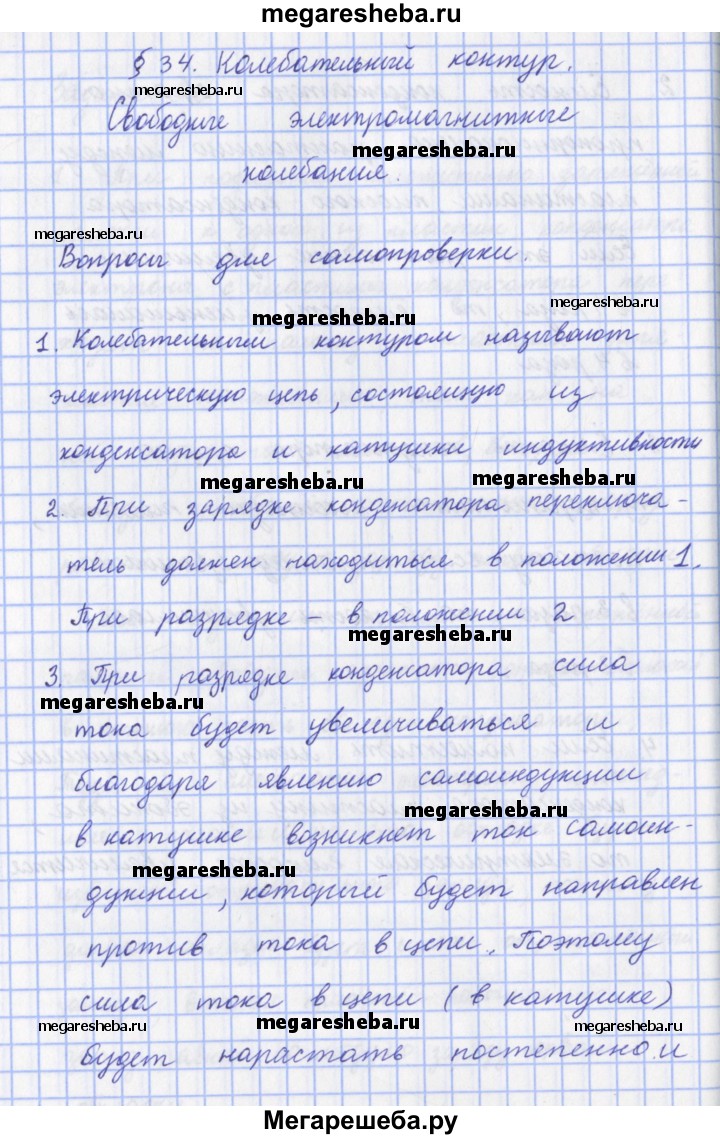 megaresheba.ru
§ 34. Колебательный контур.
megaresheba.ru
Свободные электромагнитные
megaresheba.ru
колебания.
megaresheba.ru
Вопросы для самопроверки.
megaresheba.ru
megaresheba.ru
1. Колебательным контуром называют
электрическую цепь, состоящую из
конденсатора и катушки индуктивности
megaresheba.ru
megaresheba.ru
2. При зарядке конденсатора переключа-
тель должен находиться в положении 1.
При разрядке – в положении 2
megaresheba.ru
3. При разрядке конденсатора сила
megaresheba.ru
тока будет увеличиваться и
благодаря явлению самоиндукции
megaresheba.ru
в катушке возникнет ток самоин-
megaresheba.ru
дукции, который будет направлен
против тока в цепи. Поэтому
сила тока в цепи (в катушке)
megaresheba.ru
megaresheba.ru
megaresheba.ru
будет нарастать постепенно и
Мегарешеба.ру